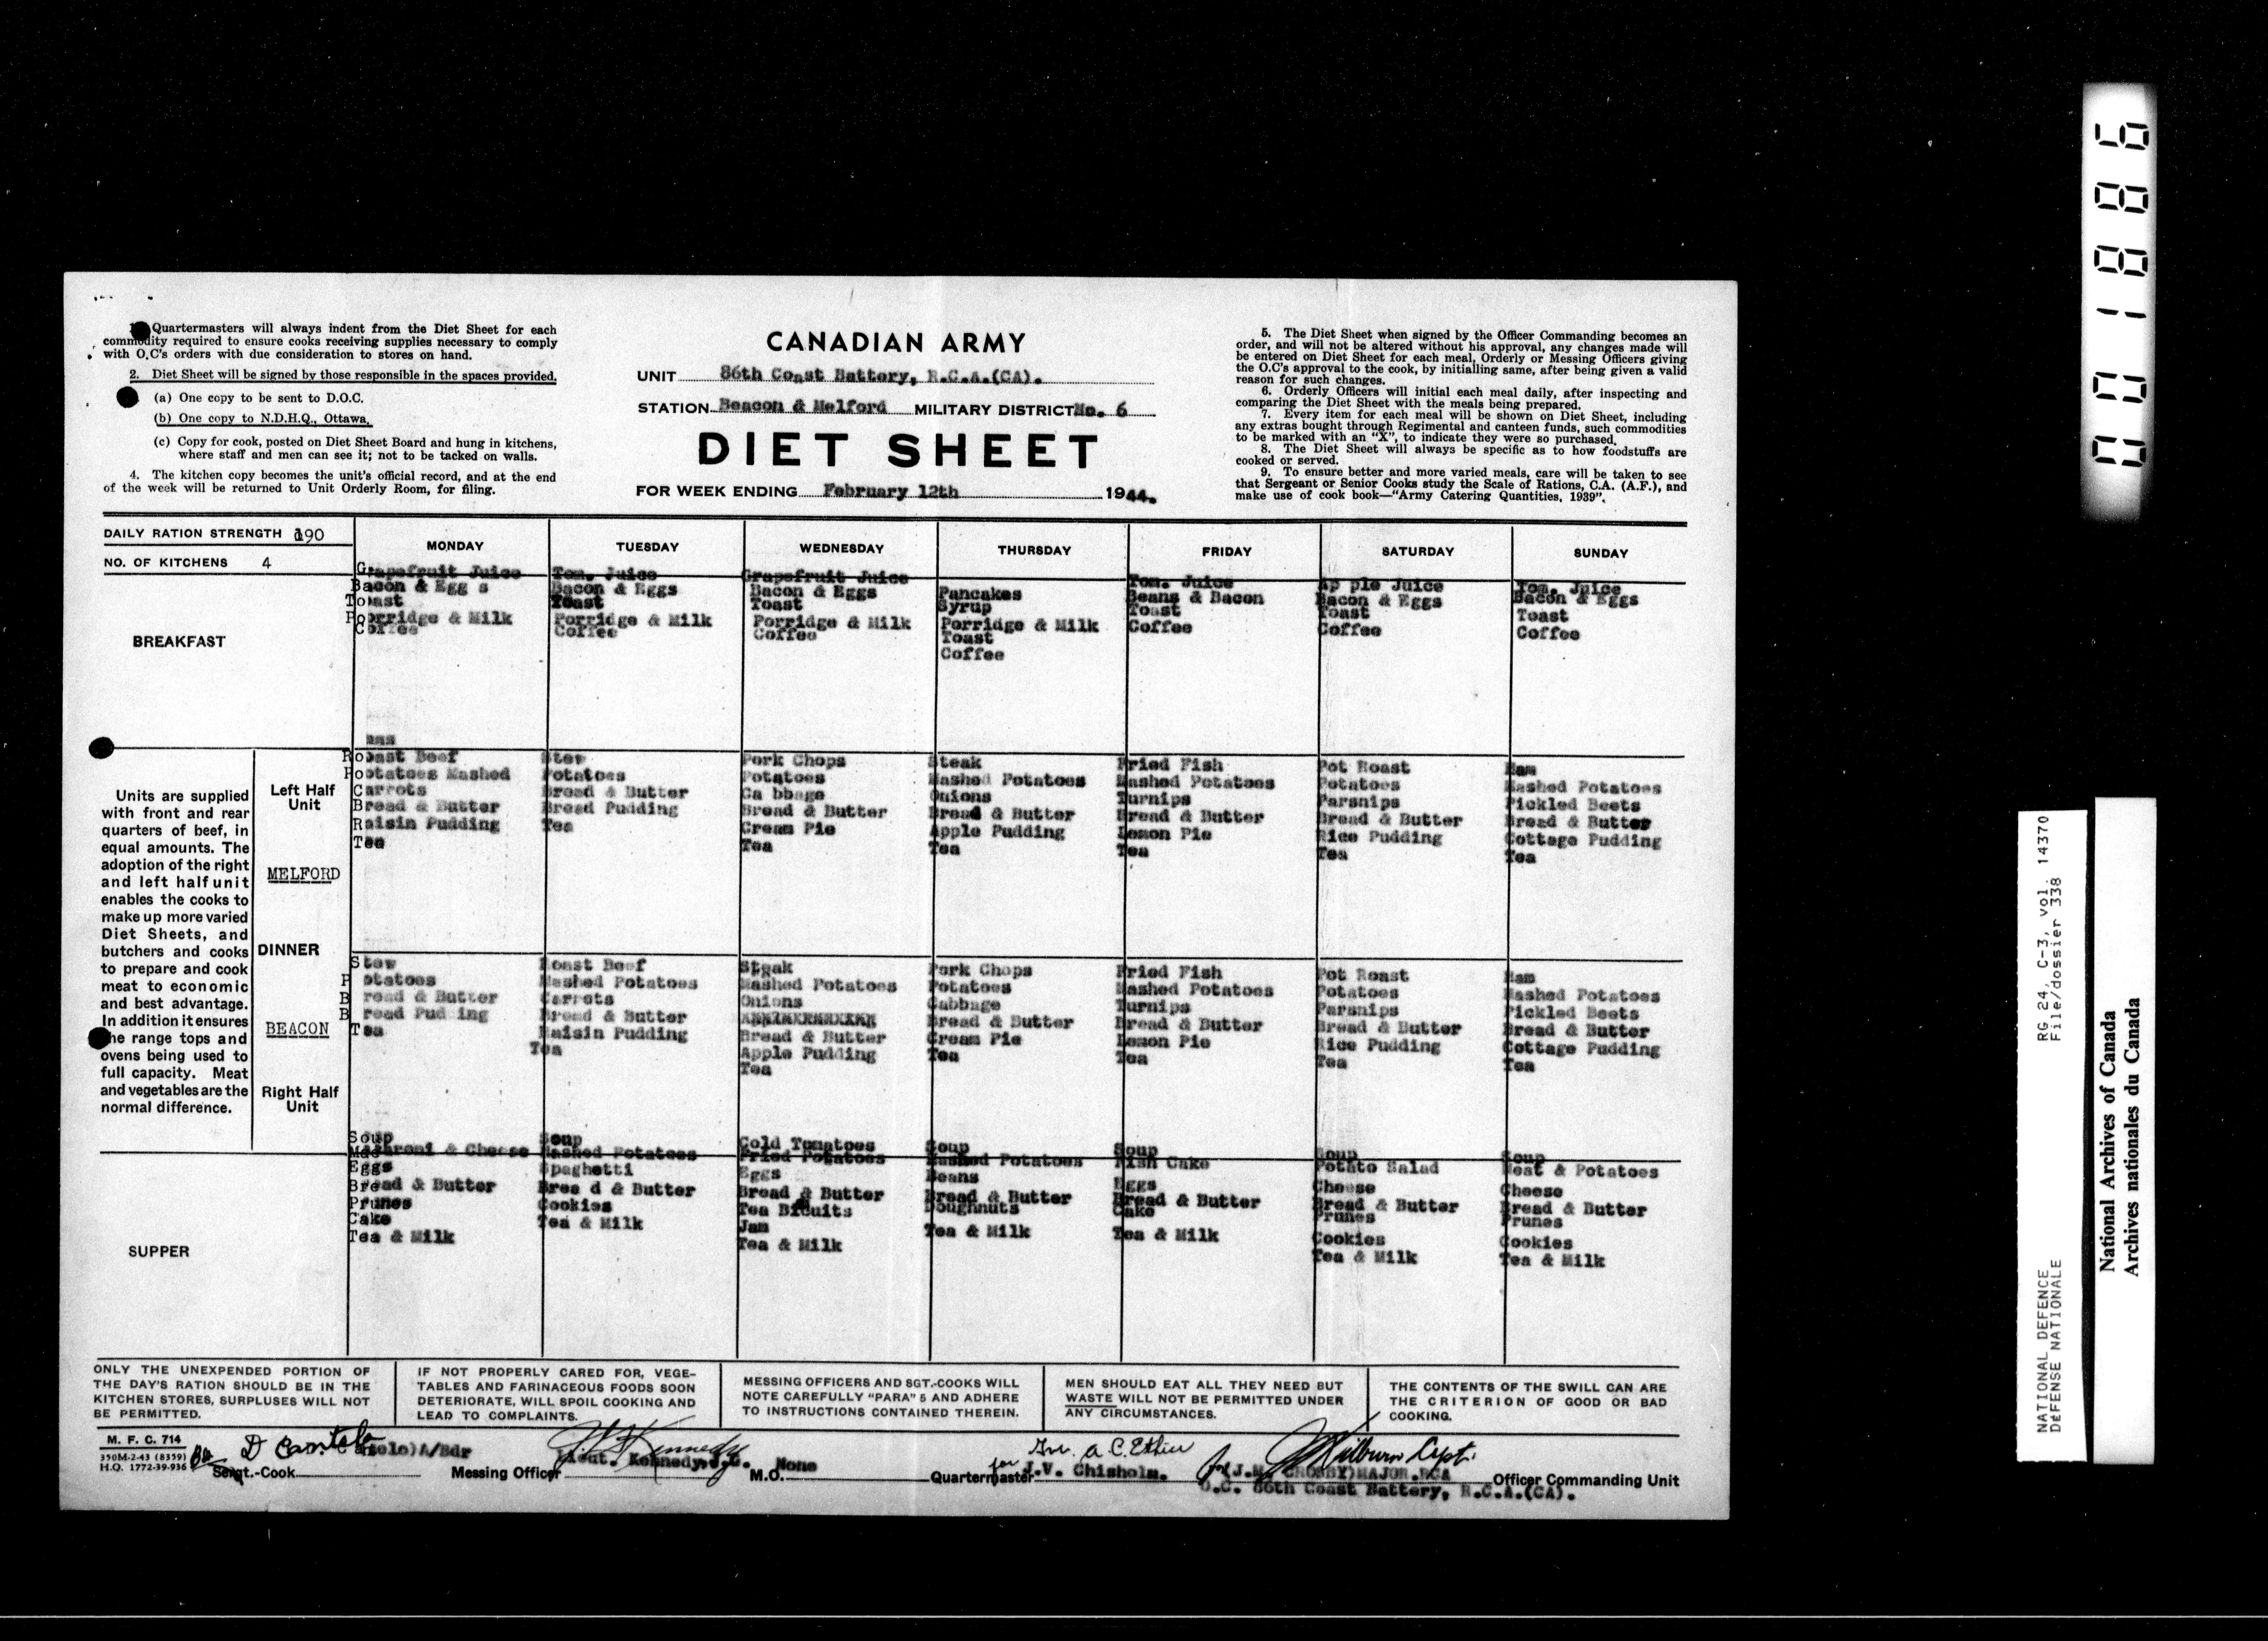 1. Quartermasters will always indent from the Diet Sheet for each
commodity required to ensure cooks receiving supplies necessary to comply
with O.C's orders with due consideration to stores on hand.
2. Diet Sheet will be signed by those responsible in the spaces provided.
(a) One copy to be sent to D.O.C.
(b) One copy to N.D.H.Q., Ottawa.
(c) Copy for cook, posted on Diet Sheet Board and hung in kitchens,
where staff and men can see it; not to be tacked on walls.
4. The kitchen copy becomes the unit's official record, and at the end
of the week will be returned to Unit Orderly Room, for filing.
CANADIAN ARMY
UNIT 86th Coast Battery, R.C.A.(CA).
STATION Beacon & Melford MILITARY DISTRICT No. 6
DIET SHEET
FOR WEEK ENDING February 12th 1944.
5. The Diet Sheet when signed by the Officer Commanding becomes an
order, and will not be altered without his approval, any changes made will
be entered on Diet Sheet for each meal, Orderly or Messing Officers giving
the O.C's approval to the cook, by initialling same, after being given a valid
reason for such changes.
6. Orderly Officers will initial each meal daily, after inspecting and
comparing the Diet Sheet with the meals being prepared.
7. Every item for each meal will be shown on Diet Sheet, including
any extras bought through Regimental and canteen funds, such commodities
to be marked with an "X", to indicate they were so purchased.
8. The Diet Sheet will always be specific as to how foodstuffs are
cooked or served.
9. To ensure better and more varied meals, care will be taken to see
that Sergeant or Senior Cooks study the Scale of Rations, C.A. (A.F.), and
make use of cook book—"Army Catering Quantities, 1939".
DAILY RATION STRENGTH 190
NO. OF KITCHENS 4
MONDAY
TUESDAY
WEDNESDAY
THURSDAY
FRIDAY
SATURDAY
SUNDAY
BREAKFAST
Grapefruit Juice
Bacon & Egg s
Toast
Porridge & Milk
Coffee
Tom. Juice
Bacon & Eggs
Toast
Porridge & Milk
Coffee
Grapefruit Juice
Bacon & Eggs
Toast
Porridge & Milk
Coffee
Pancakes
Syrup
Porridge & Milk
Toast
Coffee
Tom. Juice
Beans & Bacon
Toast
Coffee
Ap ple Juice
Bacon & Eggs
Toast
Coffee
Tom. Juice
Bacon & Eggs
Toast
Coffee
Units are supplied
with front and rear
quarters of beef, in
equal amounts. The
adoption of the right
and left half unit
enables the cooks to
make up more varied
Diet Sheets, and
butchers and cooks
to prepare and cook
meat to economic
and best advantage.
In addition it ensures
the range tops and
ovens being used to
full capacity. Meat
and vegetables are the
normal difference.
Left Half
Unit
MELFORD
DINNER
BEACON
Right Half
Unit
Roast Beef
Potatoes Mashed
Carrots
Bread & Butter
Raisin Pudding
Tea
Stew
Potatoes
Bread & Butter
Bread Pudding
Tea
Pork Chops
Potatoes
Ca bbage
Bread & Butter
Cream Pie
Tea
Steak
Mashed Potatoes
Onions
Bread & Butter
Apple Pudding
Tea
Fried Fish
Mashed Potatoes
Turnips
Bread & Butter
Lemon Pie
Tea
Pot Roast
Potatoes
Parsnips
Bread & Butter
Rice Pudding
Tea
Ham
Mashed Potatoes
Pickled Beets
Bread & Butter
Cottage Pudding
Tea
Stew
Potatoes
Bread & Butter
Bread Pud ing
Tea
Roast Beef
Mashed Potatoes
Carrots
Bread & Butter
Raisin Pudding
Tea
Steak
Mashed Potatoes
Onions
Bread & Butter
Apple Pudding
Tea
Pork Chops
Potatoes
Cabbage
Bread & Butter
Cream Pie
Tea
Fried Fish
Mashed Potatoes
Turnips
Bread & Butter
Lemon Pie
Tea
Pot Roast
Potatoes
Parsnips
Bread & Butter
Rice Pudding
Tea
Ham
Mashed Potatoes
Pickled Beets
Bread & Butter
Cottage Pudding
Tea
SUPPER
Soup
Macaroni & Cheese
Eggs
Bread & Butter
Prunes
Cake
Tea & Milk
Soup
Mashed Potatoes
Spaghetti
Brea d & Butter
Cookies
Tea & Milk
Cold Tomatoes
Fried Potatoes
Eggs
Bread & Butter
Tea Bicuits
Jam
Tea & Milk
Soup
Mashed Potatoes
Beans
Bread & Butter
Doughnuts
Tea & Milk
Soup
Fish Cake
Eggs
Bread & Butter
Cake
Tea & Milk
Soup
Potato Salad
Cheese
Bread & Butter
Prunes
Cookies
Tea & Milk
Soup
Meat & Potatoes
Cheese
Bread & Butter
Prunes
Cookies
Tea & Milk
ONLY THE UNEXPENDED PORTION OF
THE DAY'S RATION SHOULD BE IN THE
KITCHEN STORES, SURPLUSES WILL NOT
BE PERMITTED.
IF NOT PROPERLY CARED FOR, VEGE-
TABLES AND FARINACEOUS FOODS SOON
DETERIORATE, WILL SPOIL COOKING AND
LEAD TO COMPLAINTS.
MESSING OFFICERS AND SGT.-COOKS WILL
NOTE CAREFULLY "PARA" 5 AND ADHERE
TO INSTRUCTIONS CONTAINED THEREIN.
MEN SHOULD EAT ALL THEY NEED BUT
WASTE WILL NOT BE PERMITTED UNDER
ANY CIRCUMSTANCES.
THE CONTENTS OF THE SWILL CAN ARE
THE CRITERION OF GOOD OR BAD
COOKING.
M. F. C. 714
350M-2-43 (8359)
H.Q. 1772-39-936
Sergt.-Cook
A/Bdr
Messing Officer Lieut. Kennedy, J.
M.O. None
Quartermaster for J.V. Chisholm.
A.C. Ethier
for (J.M. CROSBY) MAJOR.RCA Officer Commanding Unit
O.C. 86th Coast Battery, R.C.A.(CA).
001886
NATIONAL DEFENCE RG 24, C-3, vol. 14370
DÉFENSE NATIONALE File/dossier 338
National Archives of Canada
Archives nationales du Canada